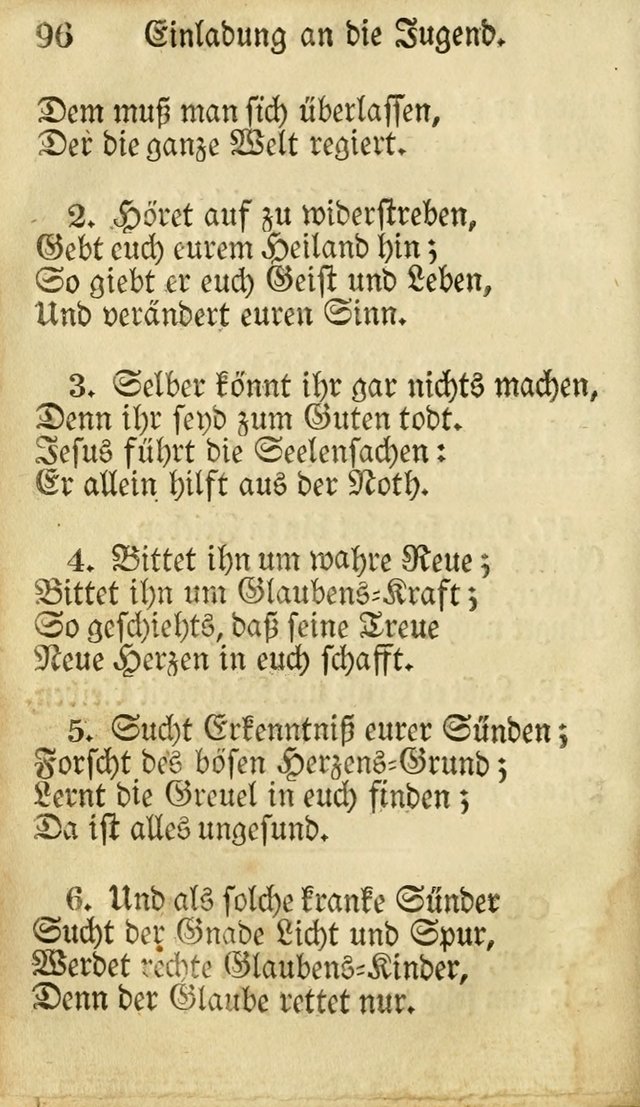 96 Einladung an die Jugend.
Dem muß man sich überlassen,
Der die ganze Welt regiert.
2. Höret auf zu widerstreben,
Gebt euch eurem Heiland hin;
So giebt er euch Geist und Leben,
Und verändert euren Sinn.
3. Selber könnt ihr gar nichts machen,
Denn ihr seyd zum Guten todt.
Jesus führt die Seelensachen:
Er allein hilft aus der Noth.
4. Bittet ihn um wahre Reue;
Bittet ihn um Glaubens-Kraft;
So geschiehts, daß seine Treue
Neue Herzen in euch schafft.
5. Sucht Erkenntniß eurer Sünden;
Forscht des bösen Herzens-Grund;
Lernt die Greuel in euch finden;
Da ist alles ungesund.
6. Und als solche kranke Sünder
Sucht der Gnade Licht und Spur,
Werdet rechte Glaubens-Kinder,
Denn der Glaube rettet nur.